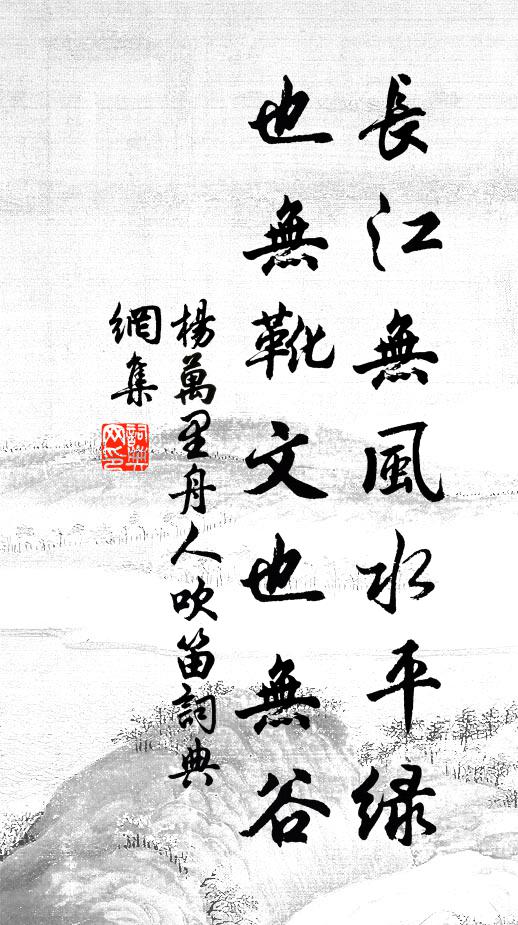 長江無風水平綠
也無靴文也無谷
楊萬里舟人吹笛詞典
網集